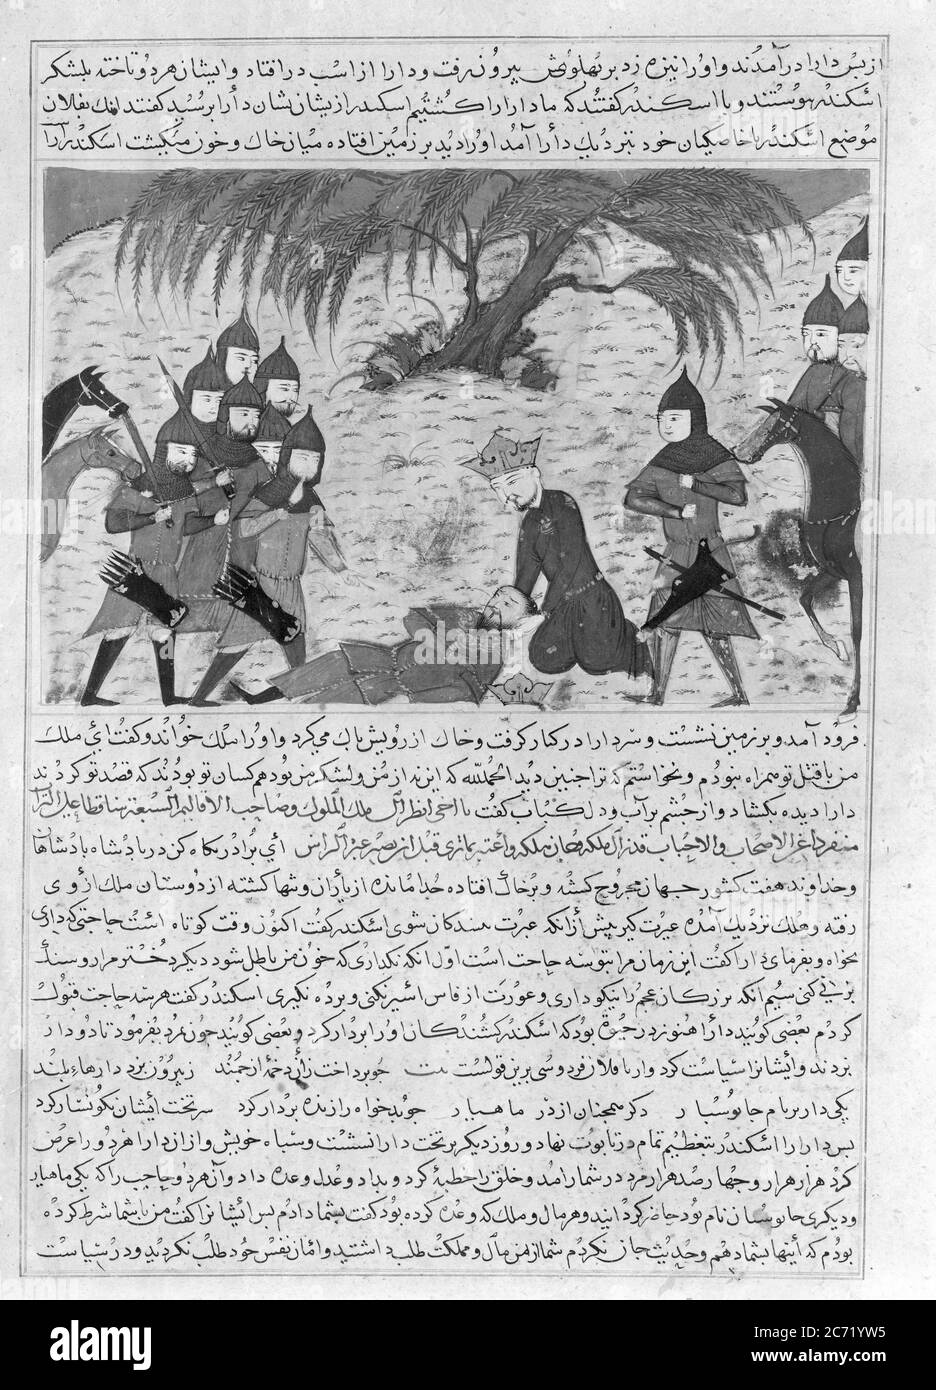 از پس دارا درآمدند و او را نیزه زد بر پهلو بیرون رفت و دارا از اسب درافتاد و ایشان هر دو تاخته بلشکر
اسکندر پیوستند و با اسکندر گفتند که ما دارا را کشتیم اسکندر از ایشان نشان دارا پرسید گفتند اینک بفلان
موضع اسکندر با خاصکیان خود نزدیک دارا آمد او را دید بر زمین افتاده میان خاک و خون میگشت اسکندر را
فرود آمد و بر زمین نشست و سر دارا در کنار گرفت و خاک از رویش پاک می‌کرد و او را ملک خواند و گفت ای ملک
من با قتل تو همراه نبودم و نخواستم که ترا چنین دید الحمدلله که این بد از من و لشکر من نبود هم کسان تو بودند که قصد تو کردند
دارا دیده بگشاد و از چشم پر آب و دل کباب گفت یا اخی انظر الی ملک الملوک و صاحب الاقالیم السبعة ساقطا علی التراب
ای برادر نگاه کن در پادشاه پادشاهان
و خداوند هفت کشور جهان مجروح گشته و بر خاک افتاده جدا مانده از یاران و تنها گشته از دوستان ملک ازوی
رفته و هلک نزدیک آمده عبرت گیر پیش از آنکه عبرت شوی اسکندر گفت اکنون وقت کوتاه است حاجتی که داری
بخواه و بفرمای دارا گفت این زمان مرا بتو سه حاجت است اول آنکه نگذاری که خون من باطل شود دیگر دخترم روسنک
بزنی کنی سیم آنکه بزرگان عجم را نیکو داری و عورت از فارس اسیر نکنی و برده نگیری اسکندر گفت هر سه حاجت قبول
کردم بعضی گویند دارا هنوز در حیوة بود که اسکندر کشندگان او را بر دار کرد و بعضی گویند چون بمرد بفرمود تا دو دار
بزدند و ایشانرا سیاست کرد
یکی دار بر نام جانوسیار دگر همچنان از در ماهیار
پس دارا را اسکندر بتعظیم تمام در تابوت نهاد و روز دیگر بر تخت دارا نشست و سپاه خویش و از آن دارا هر دو را عرض
کرد هزار هزار و چهار صد هزار مرد در شمار آمد و خلق را خطبه کرد و بداد و عدل وعده داد و آن هر دو حاجب را که یکی ماهیار
و دیگری جانوسیار نام بود حاضر گردانید و هر مال و ملک که وعده کرده بود گفت بشما دادم پس ایشانرا گفت من با شما شرط کرده
بودم که اینها بشما دهم و حدیث جان نکردم شما از من مال و مملکت طلب داشتید و امان نفس خود طلب نکردید و در سیاست
alamy
Image ID: 2C71YW5
www.alamy.com